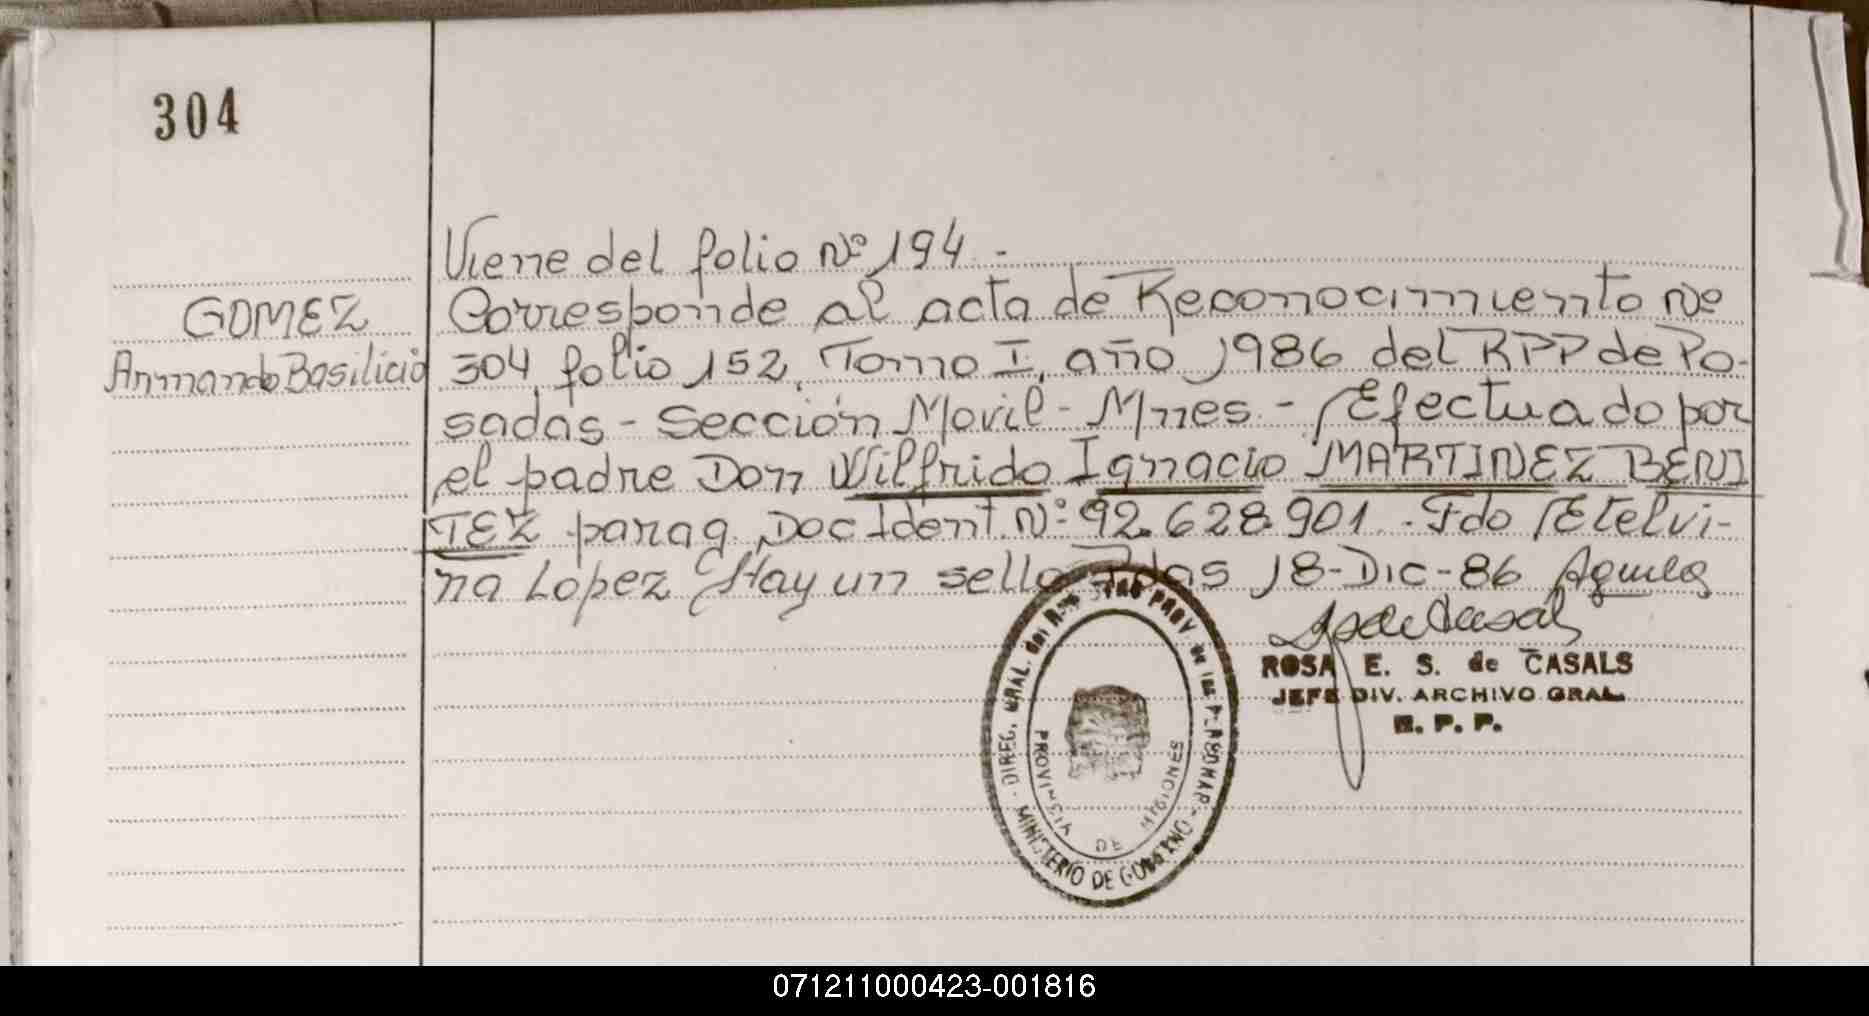 304
Viene del folio Nº 194 -
GOMEZ
Armando Basilicio
Corresponde al acta de Reconocimiento Nº
304 folio 152, Tomo I, año 1986 del RPP de Po-
sadas - Sección Movil - Mnes. - Efectuado por
el padre Don Wilfrido Ignacio MARTINEZ BENI
TEZ parag. Doc Ident. Nº 92.628.901. Fdo Etelvi-
na Lopez Hay un sello Pdas 18-Dic-86
ROSA E. S. de CASALS
JEFE DIV. ARCHIVO GRAL.
R. P. P.
DIREC. GRAL. del PROV. de las
MINISTERIO DE GOBIERNO
PROVINCIA DE MISIONES
071211000423-001816